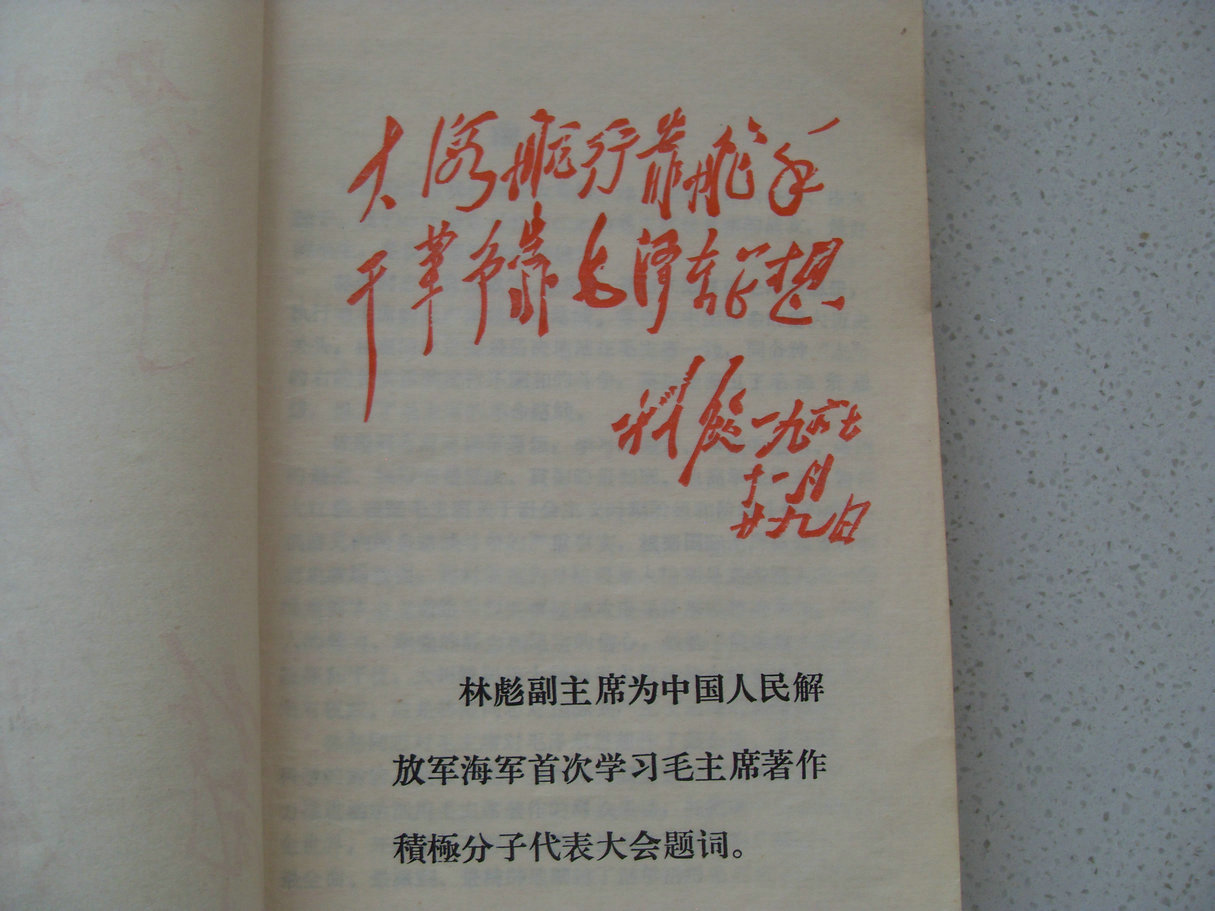 大海航行靠舵手
干革命靠毛泽东思想
林彪 一九六七
十一月
廿九日
林彪副主席为中国人民解
放军海军首次学习毛主席著作
積極分子代表大会题词。